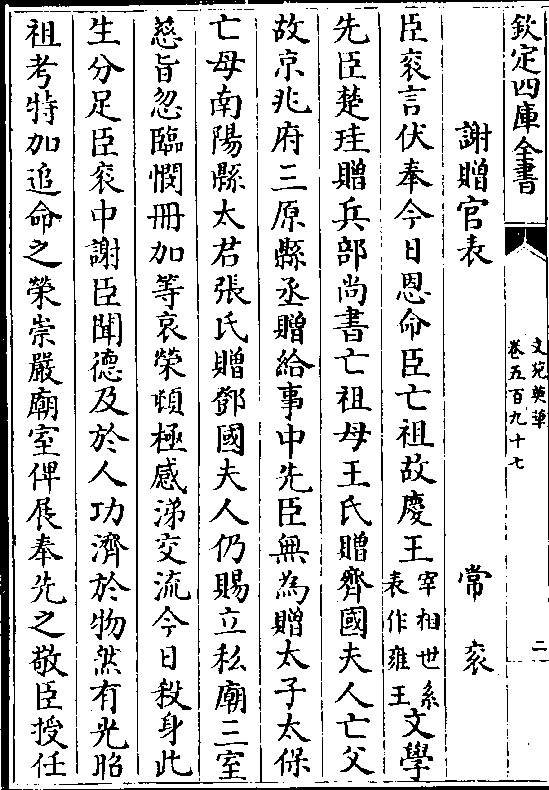 欽定四庫全書
文苑英華
卷五百九十七
二
謝贈官表
常衮
臣衮言伏奉今日恩命臣亡祖故慶王宰相世系表作雍王文學
先臣楚珪贈兵部尚書亡祖母王氏贈齊國夫人亡父
故京兆府三原縣丞贈給事中先臣無為贈太子太保
亡母南陽縣太君張氏贈鄧國夫人仍賜立私廟三室
慈旨忽臨憫冊加等哀榮頓極感涕交流今日殺身此
生分足臣衮中謝臣聞德及於人功濟於物然有光昭
祖考特加追命之榮崇嚴廟室俾展奉先之敬臣授任